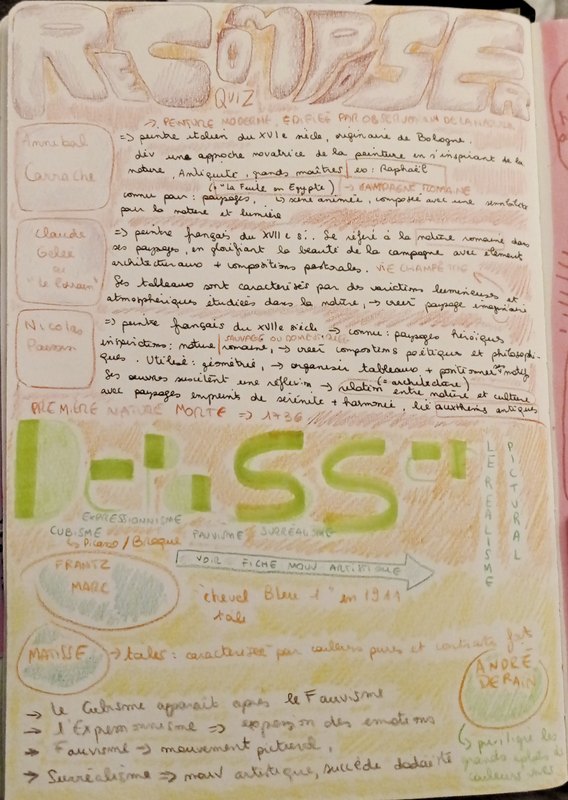 RECOMPOSER
QUIZ
-> PEINTURE MODERNE, ÉDIFIÉE PAR OBSERTVATION DE LA NATURE
Annibal
Carrache
=> peintre italien du XVIe siècle, originaire de Bologne.
dév une approche novatrice de la peinture en s'inspirant de la
nature, Antiquité, grands maîtres | ex: Raphaël
(+ "La Fuite en Egypte") -> CAMPAGNE ROMAINE
connu pour: paysages, ↳ scène animée, composée avec une sensibilité
pour la nature et lumière
Claude
Gelée
ou
"le Lorrain"
=> peintre français du XVII e si. Se réfère à la nature romaine dans
ses paysages, en glorifiant la beauté de la campagne avec élément
architecturaux + compositions pastorales. VIE CHAMPÊTRE
Ses tableaux sont caractérisés par des variations lumineuses et
atmosphériques étudiées dans la nature, -> créer paysage imaginaire
Nicolas
Poussin
=> peintre français du XVIIe siècle -> connu: paysages héroïques
SAUVAGE OU DOMESTIQUÉE
inspirations: nature romaine, -> créer compositions poétiques et philosophi-
ques. Utilise: géométrie, -> organiser tableaux + positionner motifs
(= architecture)
Ses œuvres suscitent une réflexion -> relation entre nature et culture
avec paysages empreints de sérénité + harmonie, lié aux thèmes antiques
PREMIÈRE NATURE MORTE => 1736
DEPASSER
LE REALISME
PICTURAL
EXPRESSIONNISME
CUBISME FAUVISME SURREALISME
↳ Picasso / Braque
VOIR FICHE MOUV ARTISTIQUE
FRANTZ
MARC
"cheval Bleu 1" en 1911
MATISSE
-> toiles: caractérisée par couleurs pures et contraste fort
ANDRÉ
DERAIN
-> Le Cubisme apparaît après le Fauvisme
-> l'Expressionisme => expression des emotions
-> Fauvisme -> mouvement pictural,
-> Surréalisme => mouv artistique, succède dadaïste
↳ privilégie les
grands aplats de
couleurs